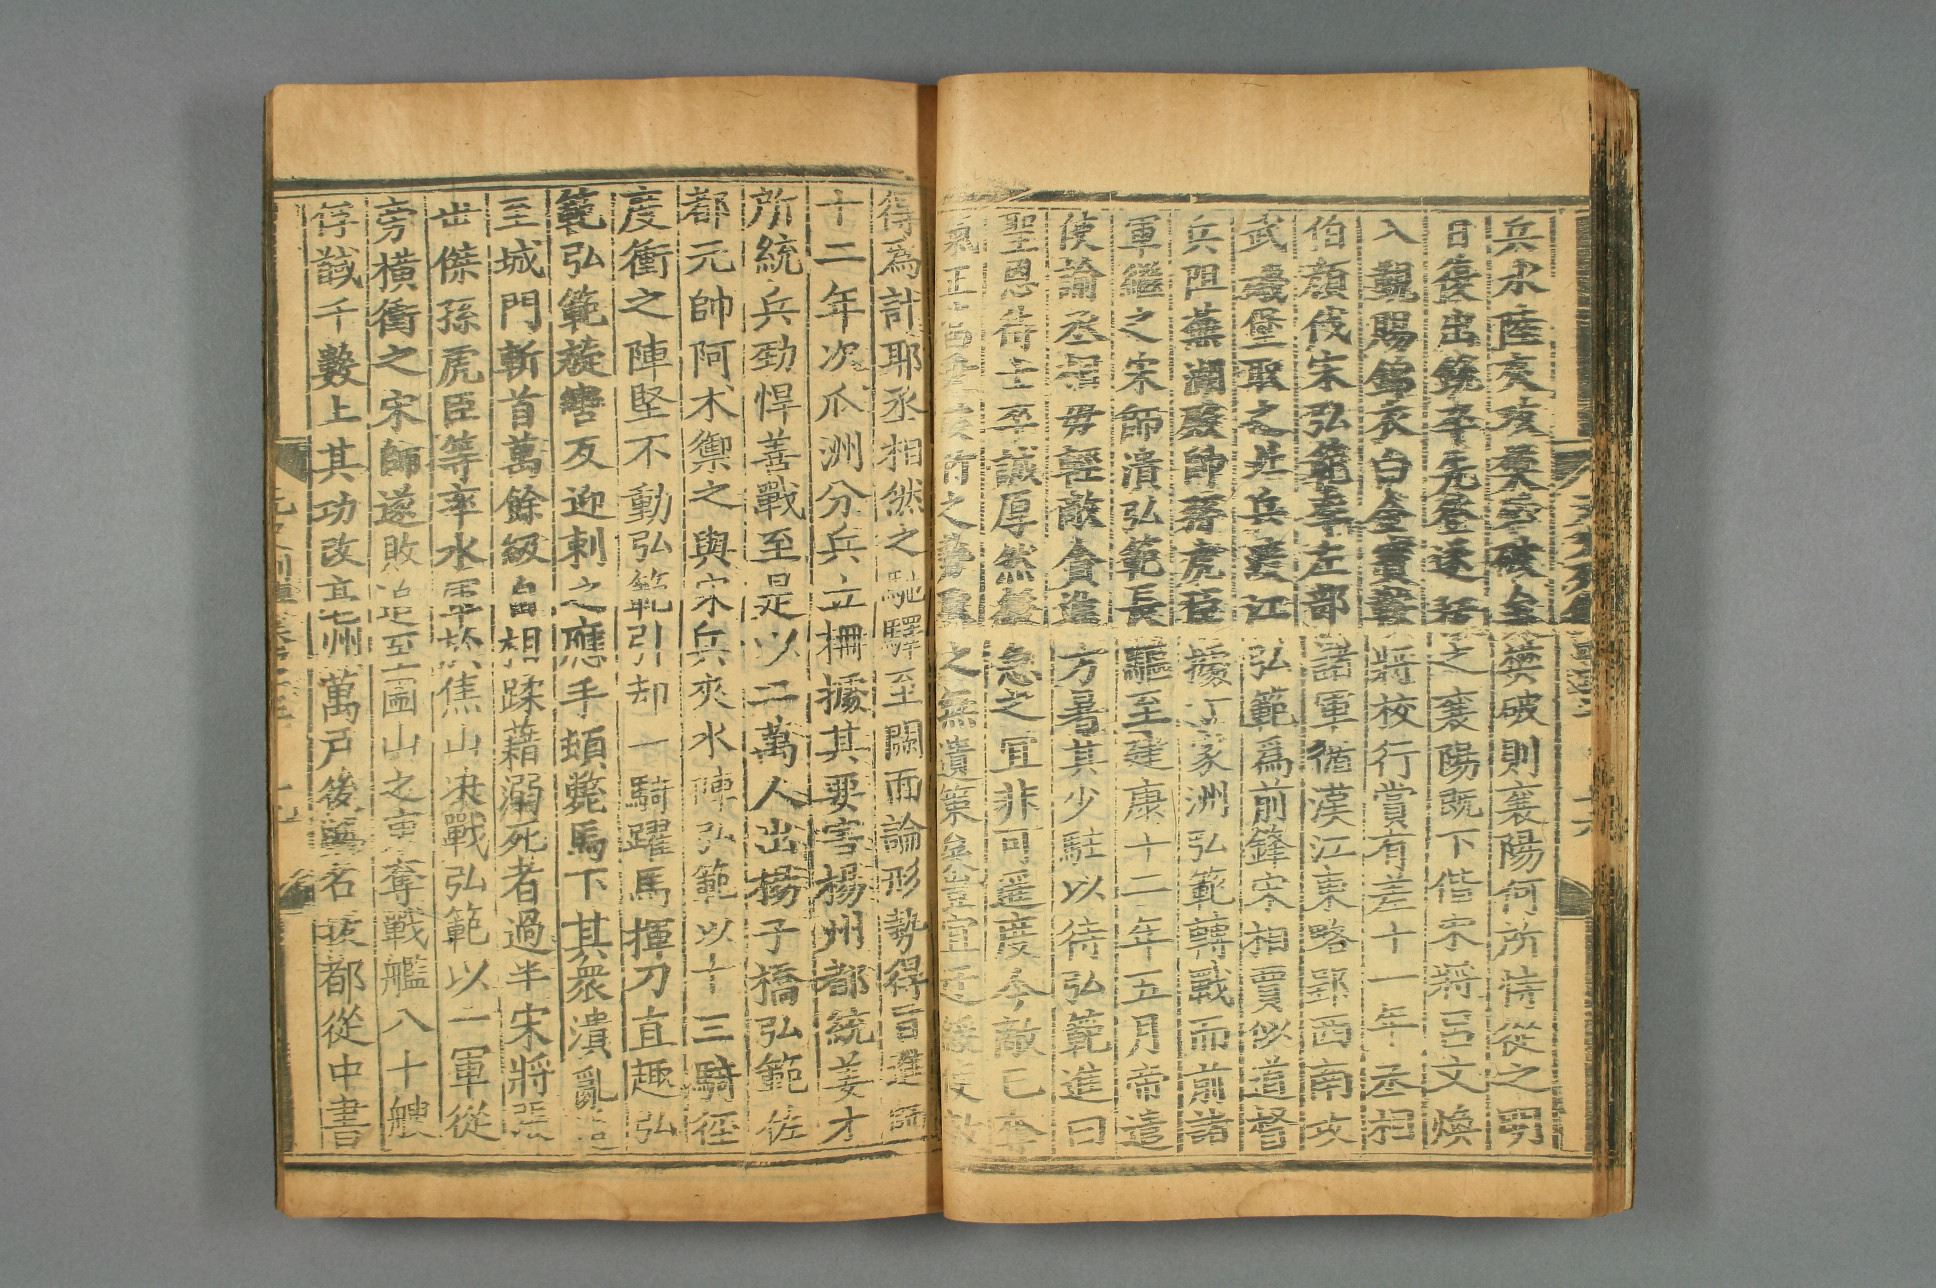 兵水陸夾攻樊必破樊破則襄陽何所恃從之明
日復出銳卒先登遂拔之襄陽既下偕宋將呂文煥
入覲賜錦衣白金寶鞍將校行賞有差十一年丞相
伯顏伐宋弘範率左部諸軍循漢江東略郢西南攻
武磯堡取之北兵渡江弘範爲前鋒宋相賈似道督
兵阻蕪湖殿帥孫虎臣據丁家洲弘範轉戰而前諸
軍繼之宋師潰弘範長驅至建康十二年五月帝遣
使諭丞相毋輕敵貪進方暑其少駐以待弘範進曰
聖恩待士卒誠厚然緩急之宜非可遙度今敵已奪
氣正當之無遺策矣豈宜
得爲計耶丞相然之馳驛至闕面論形勢得旨進師
十二年次瓜洲分兵立柵據其要害楊州都統姜才
所統兵勁悍善戰至是以二萬人出楊子橋弘範佐
都元帥阿朮禦之與宋兵夾水陣弘範以十三騎徑
度衝之陣堅不動弘範引却一騎躍馬揮刀直趣弘
範弘範旋轡反迎刺之應手頓斃馬下其衆潰亂追
至城門斬首萬餘級自相蹂藉溺死者過半宋將張
世傑孫虎臣等率水軍於焦山決戰弘範以一軍從
旁橫衝之宋師遂敗追至圌山之東奪戰艦八十艘
俘馘千數上其功改亳州萬戶後賜名拔都從中書